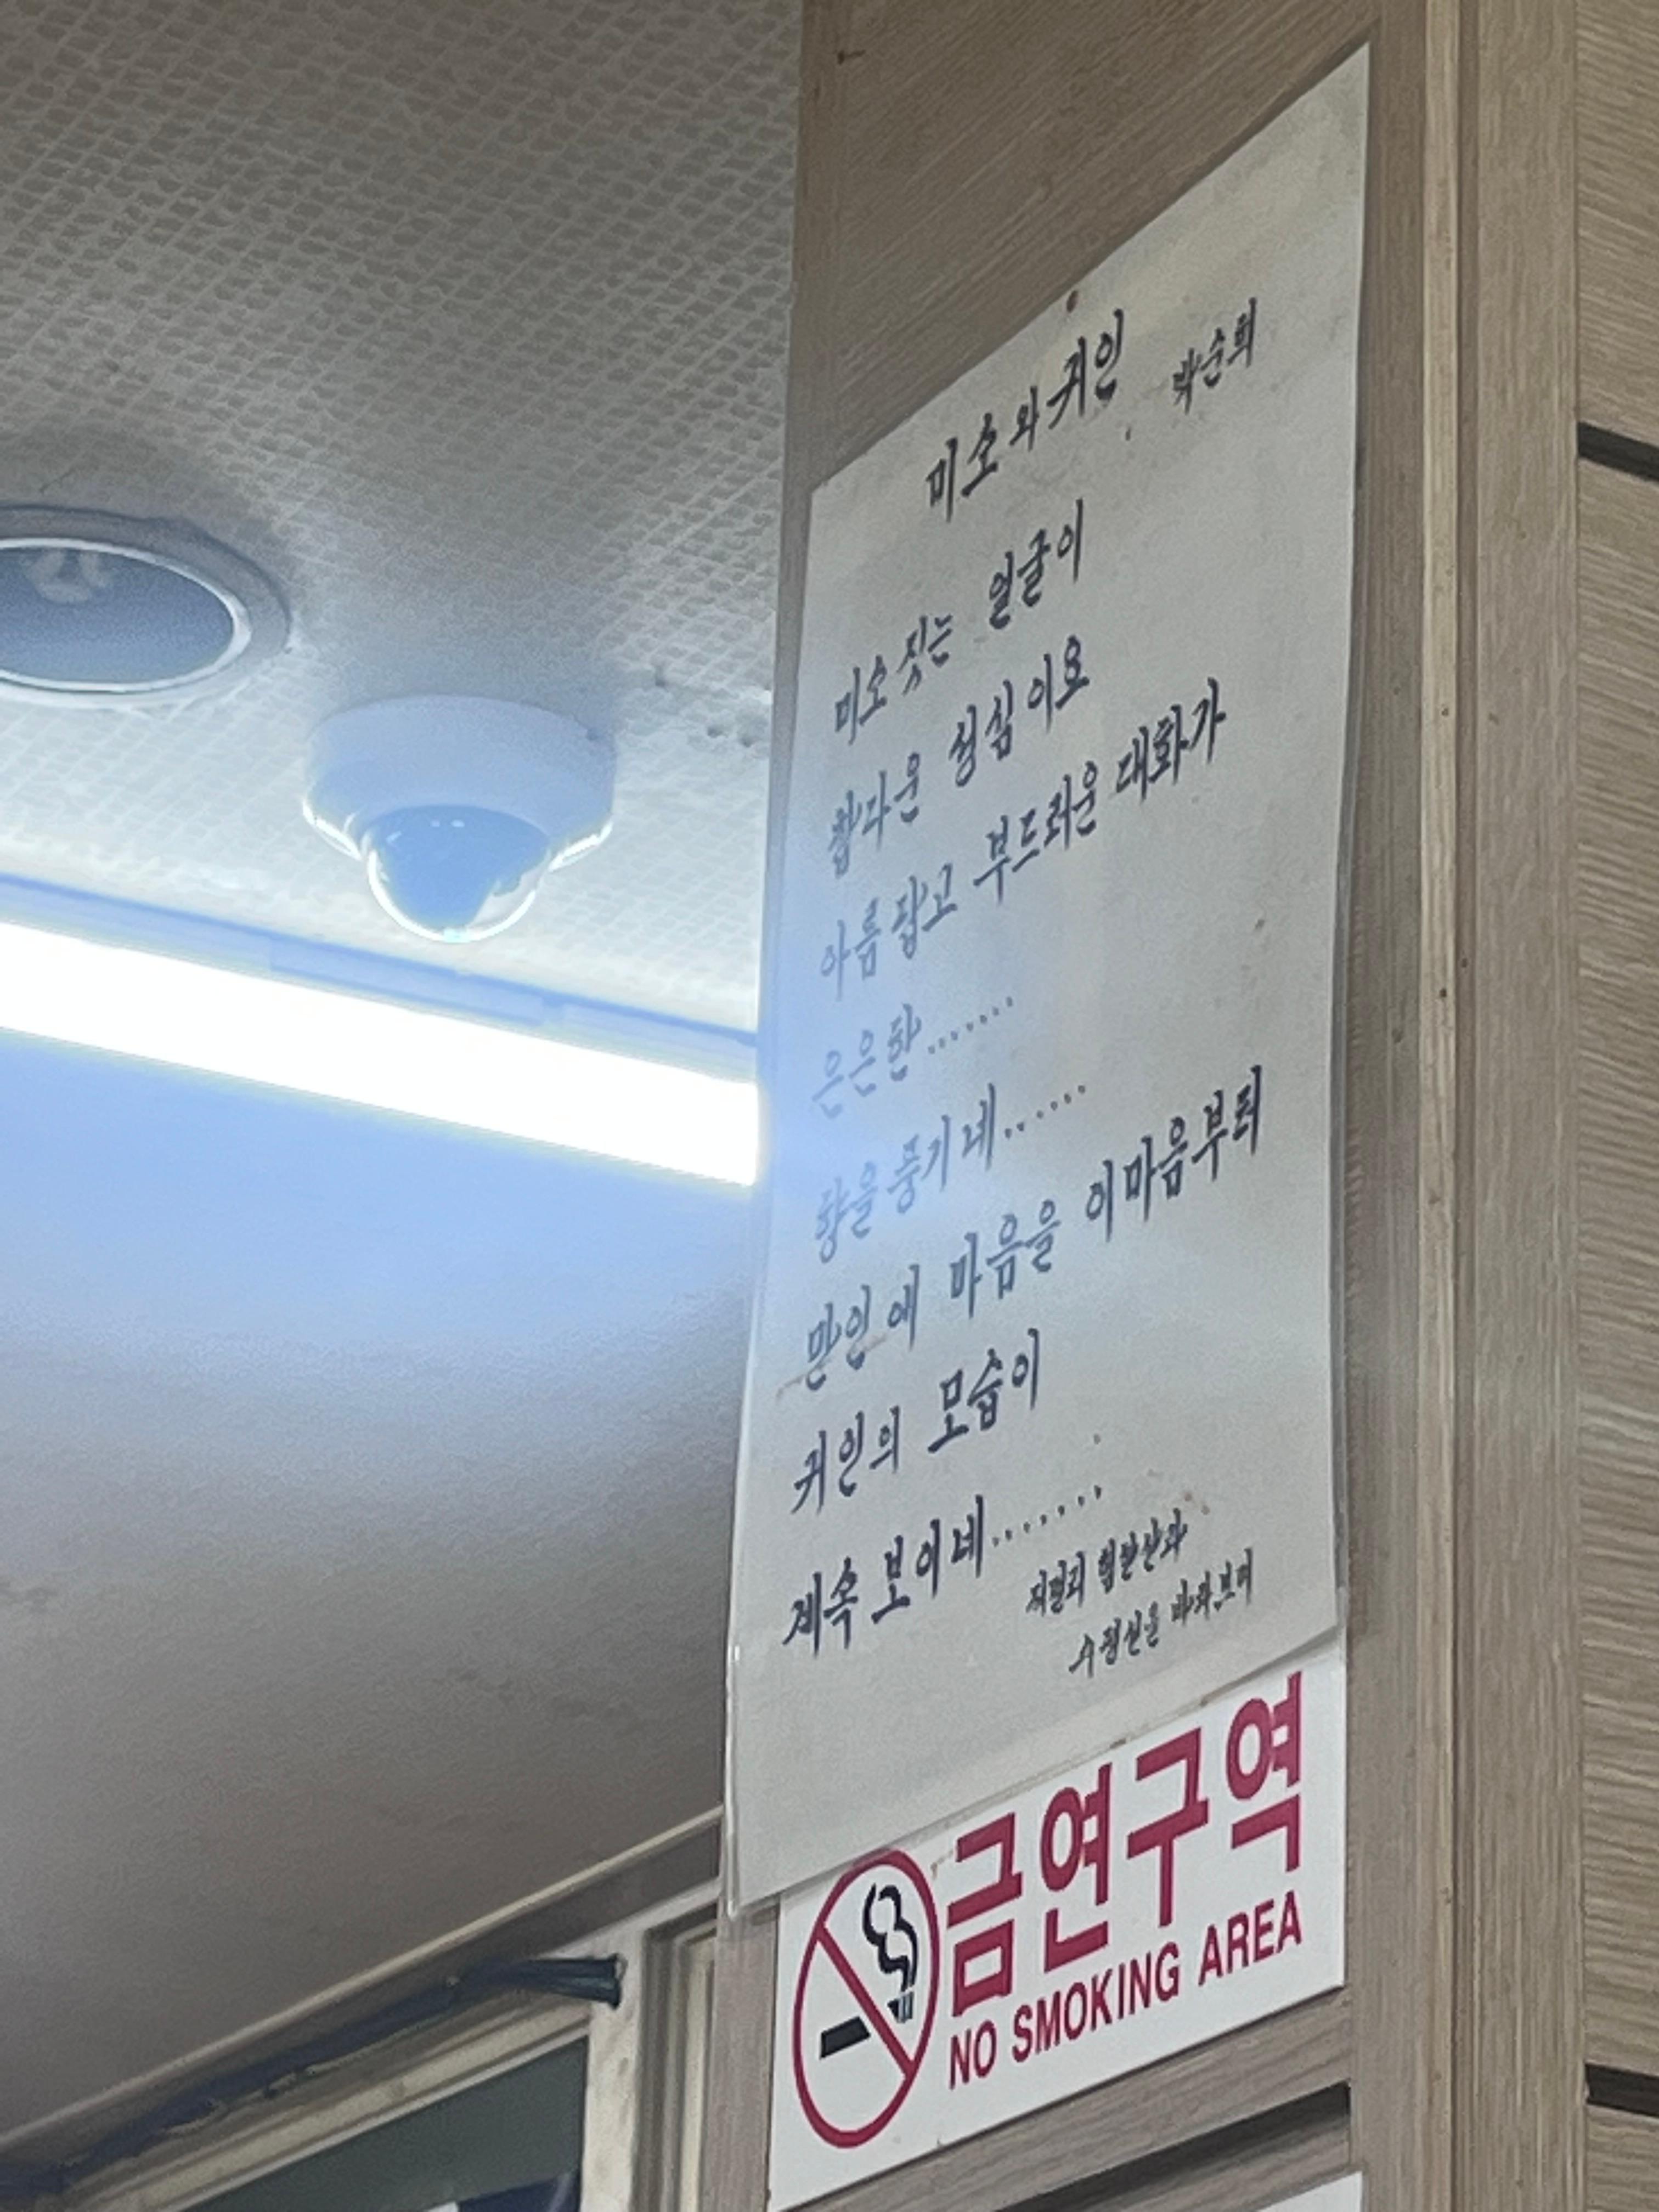 미소와 귀인 박순희
미소 짓는 얼굴이
참다운 성심이요
아름답고 부드러운 대화가
은은한.......
향을 풍기네.......
만인에 마음을 이마음부터
귀인의 모습이
계속 보이네.......
바라보며
금연구역
NO SMOKING AREA